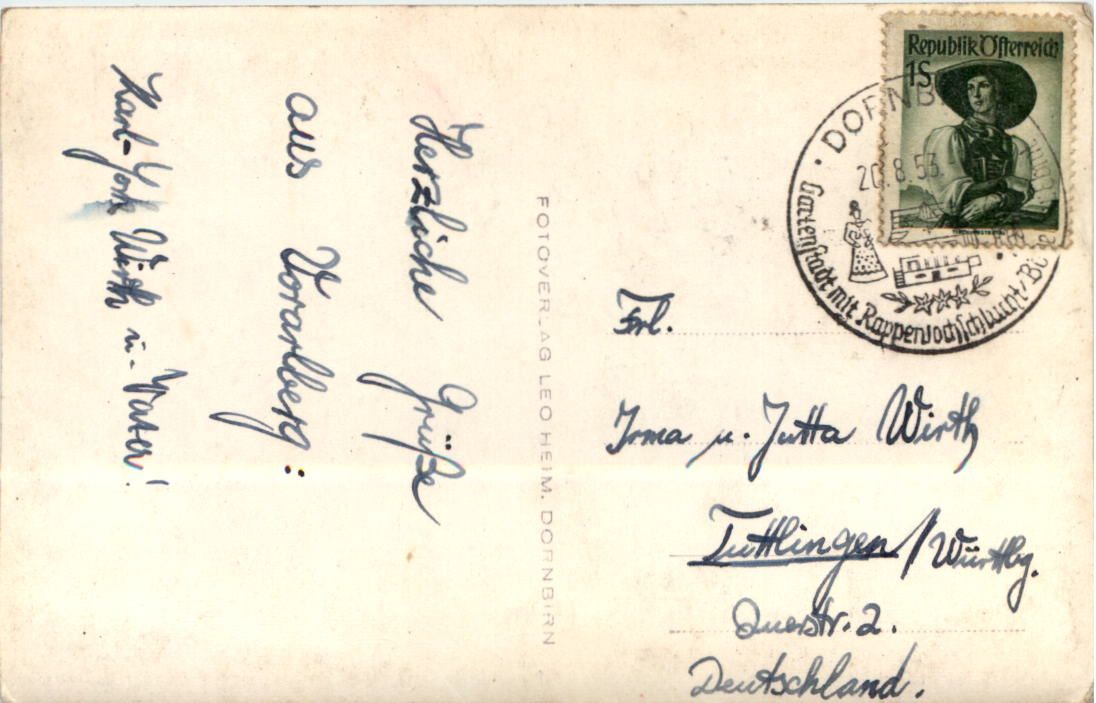 Herzliche Grüße
aus Vorarlberg:
Karl-York Wirth u. Vater!
FOTOVERLAG LEO HEIM, DORNBIRN
Republik Österreich
1S
DORNB
20.8.53.
Gartenstadt mit Rappenlochschlucht
Frl.
Irma u. Jutta Wirth
Tuttlingen / Württbg.
Querstr. 2.
Deutschland.